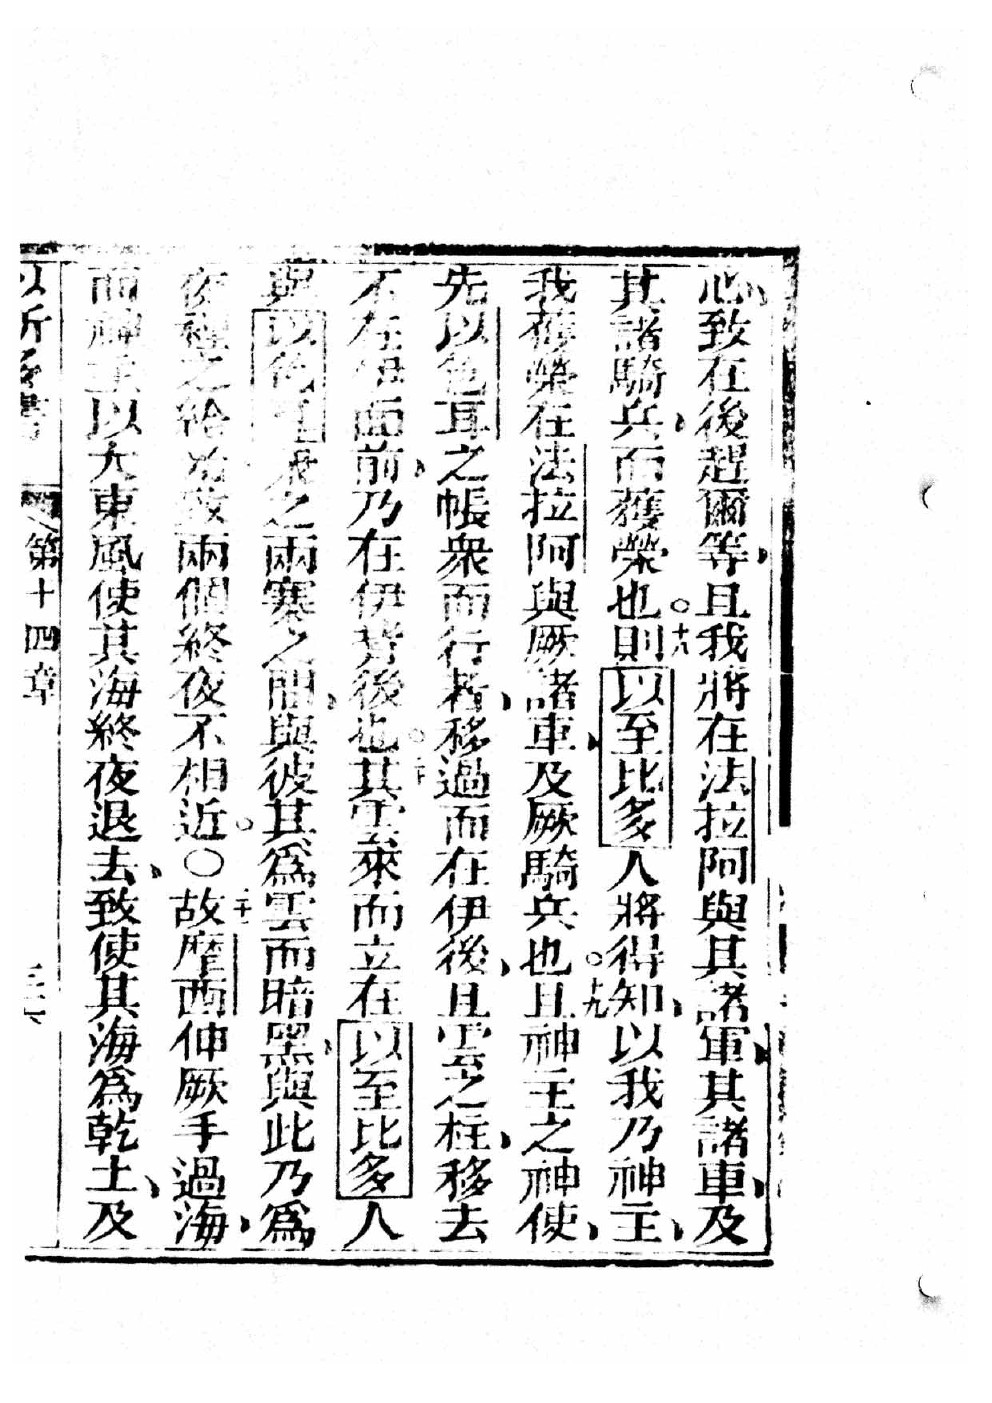 心、致在後趕爾等、且我將在法拉阿與其諸軍、其諸車、及
其諸騎兵、而獲榮也。十八則以至比多人將得知、以我乃神主、
我獲榮在法拉阿與厥諸車、及厥騎兵也。十九且神主之神使、
先以色耳之帳衆而行者、移過而在伊後、且雲之柱、移去
不在伊面前、乃在伊背後也。二十其雲來而立在以至比多人
與以色耳之兩寨之間、與彼其爲雲而暗黑、與此乃爲
夜之給致兩個終夜不相近。〇二十一故摩西伸厥手過海、
而神主以大東風使其海終夜退去、致使其海爲乾土、及
第十四章